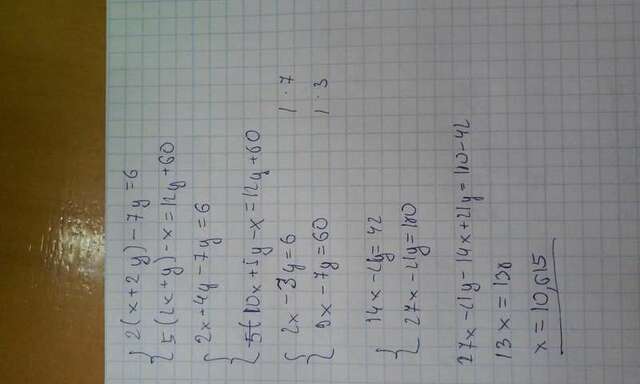 2(x+2y)-7y=6
5(2x+y)-x=12y+60
2x+4y-7y=6
10x+5y-x=12y+60
2x-3y=6 | ·7
9x-7y=60 | ·3
14x-21y=42
27x-21y=180
27x-21y-14x+21y=180-42
13x=138
x=10,615